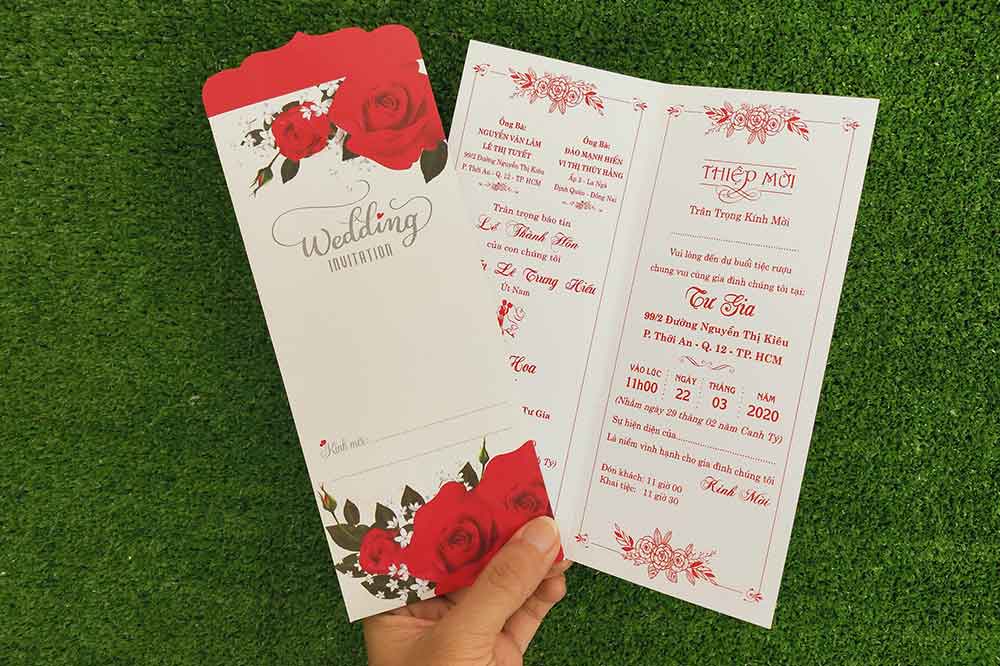 Wedding
INVITATION
Kính mời:
Ông Bà:
NGUYỄN VĂN LÂM
LÊ THỊ TUYẾT
99/2 Đường Nguyễn Thị Kiêu
P. Thới An - Q. 12 - TP. HCM
Ông Bà:
ĐÀO MẠNH HIỂN
VI THỊ THÚY HẰNG
Ấp 3 - La Ngà
Định Quán - Đồng Nai
Trân trọng báo tin
Lễ Thành Hôn
của con chúng tôi
Lê Trung Hiếu
Út Nam
Hoa
Tư Gia
Tý)
THIỆP MỜI
Trân Trọng Kính Mời
Vui lòng đến dự buổi tiệc rượu
chung vui cùng gia đình chúng tôi tại:
Tư Gia
99/2 Đường Nguyễn Thị Kiêu
P. Thới An - Q. 12 - TP. HCM
VÀO LÚC NGÀY THÁNG NĂM
11h00 22 03 2020
(Nhằm ngày 29 tháng 02 năm Canh Tý)
Sự hiện diện của
Là niềm vinh hạnh cho gia đình chúng tôi
Đón khách: 11 giờ 00
Khai tiệc: 11 giờ 30
Kính Mời